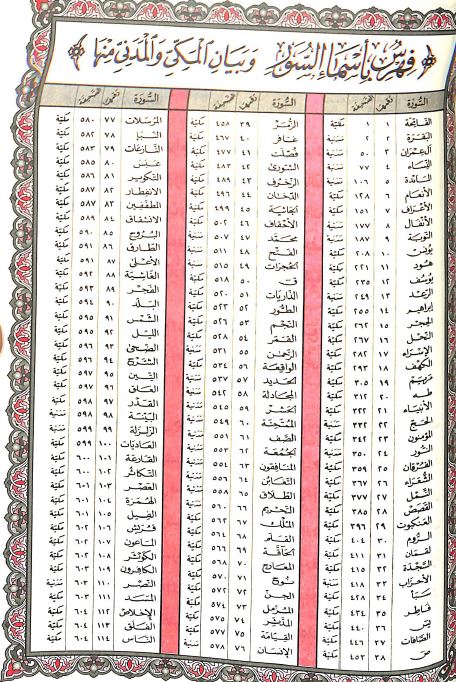 فهرس بأسماء السور وبيان المكي والمدني منها
السورة رقمها الصفحة
الفاتحة ١ ١ مكية
البقرة ٢ ٢ مدنية
آل عمران ٣ ٥٠ مدنية
النساء ٤ ٧٧ مدنية
المائدة ٥ ١٠٦ مدنية
الأنعام ٦ ١٢٨ مكية
الأعراف ٧ ١٥١ مكية
الأنفال ٨ ١٧٧ مدنية
التوبة ٩ ١٨٧ مدنية
يونس ١٠ ٢٠٨ مكية
هود ١١ ٢٢١ مكية
يوسف ١٢ ٢٣٥ مكية
الرعد ١٣ ٢٤٩ مدنية
إبراهيم ١٤ ٢٥٥ مكية
الحجر ١٥ ٢٦٢ مكية
النحل ١٦ ٢٦٧ مكية
الإسراء ١٧ ٢٨٢ مكية
الكهف ١٨ ٢٩٣ مكية
مريم ١٩ ٣٠٥ مكية
طه ٢٠ ٣١٢ مكية
الأنبياء ٢١ ٣٢٢ مكية
الحج ٢٢ ٣٣٢ مدنية
المؤمنون ٢٣ ٣٤٢ مكية
النور ٢٤ ٣٥٠ مدنية
الفرقان ٢٥ ٣٥٩ مكية
الشعراء ٢٦ ٣٦٧ مكية
النمل ٢٧ ٣٧٧ مكية
القصص ٢٨ ٣٨٥ مكية
العنكبوت ٢٩ ٣٩٦ مكية
الروم ٣٠ ٤٠٤ مكية
لقمان ٣١ ٤١١ مكية
السجدة ٣٢ ٤١٥ مكية
الأحزاب ٣٣ ٤١٨ مدنية
سبأ ٣٤ ٤٢٨ مكية
فاطر ٣٥ ٤٣٤ مكية
يس ٣٦ ٤٤٠ مكية
الصافات ٣٧ ٤٤٦ مكية
ص ٣٨ ٤٥٣ مكية
السورة رقمها الصفحة
الزمر ٣٩ ٤٥٨ مكية
غافر ٤٠ ٤٦٧ مكية
فصلت ٤١ ٤٧٧ مكية
الشورى ٤٢ ٤٨٣ مكية
الزخرف ٤٣ ٤٨٩ مكية
الدخان ٤٤ ٤٩٦ مكية
الجاثية ٤٥ ٤٩٩ مكية
الأحقاف ٤٦ ٥٠٢ مكية
محمد ٤٧ ٥٠٧ مدنية
الفتح ٤٨ ٥١١ مدنية
الحجرات ٤٩ ٥١٥ مدنية
ق ٥٠ ٥١٨ مكية
الذاريات ٥١ ٥٢٠ مكية
الطور ٥٢ ٥٢٣ مكية
النجم ٥٣ ٥٢٦ مكية
القمر ٥٤ ٥٢٨ مكية
الرحمن ٥٥ ٥٣١ مدنية
الواقعة ٥٦ ٥٣٤ مكية
الحديد ٥٧ ٥٣٧ مدنية
المجادلة ٥٨ ٥٤٢ مدنية
الحشر ٥٩ ٥٤٥ مدنية
الممتحنة ٦٠ ٥٤٩ مدنية
الصف ٦١ ٥٥١ مدنية
الجمعة ٦٢ ٥٥٣ مدنية
المنافقون ٦٣ ٥٥٤ مدنية
التغابن ٦٤ ٥٥٦ مدنية
الطلاق ٦٥ ٥٥٨ مدنية
التحريم ٦٦ ٥٦٠ مدنية
الملك ٦٧ ٥٦٢ مكية
القلم ٦٨ ٥٦٤ مكية
الحاقة ٦٩ ٥٦٦ مكية
المعارج ٧٠ ٥٦٨ مكية
نوح ٧١ ٥٧٠ مكية
الجن ٧٢ ٥٧٢ مكية
المزمل ٧٣ ٥٧٤ مكية
المدثر ٧٤ ٥٧٥ مكية
القيامة ٧٥ ٥٧٧ مكية
الإنسان ٧٦ ٥٧٨ مدنية
السورة رقمها الصفحة
المرسلات ٧٧ ٥٨٠ مكية
النبأ ٧٨ ٥٨٢ مكية
النازعات ٧٩ ٥٨٣ مكية
عبس ٨٠ ٥٨٥ مكية
التكوير ٨١ ٥٨٦ مكية
الانفطار ٨٢ ٥٨٧ مكية
المطففين ٨٣ ٥٨٧ مكية
الانشقاق ٨٤ ٥٨٩ مكية
البروج ٨٥ ٥٩٠ مكية
الطارق ٨٦ ٥٩١ مكية
الأعلى ٨٧ ٥٩١ مكية
الغاشية ٨٨ ٥٩٢ مكية
الفجر ٨٩ ٥٩٣ مكية
البلد ٩٠ ٥٩٤ مكية
الشمس ٩١ ٥٩٥ مكية
الليل ٩٢ ٥٩٥ مكية
الضحى ٩٣ ٥٩٦ مكية
الشرح ٩٤ ٥٩٦ مكية
التين ٩٥ ٥٩٧ مكية
العلق ٩٦ ٥٩٧ مكية
القدر ٩٧ ٥٩٨ مكية
البينة ٩٨ ٥٩٨ مدنية
الزلزلة ٩٩ ٥٩٩ مدنية
العاديات ١٠٠ ٥٩٩ مكية
القارعة ١٠١ ٦٠٠ مكية
التكاثر ١٠٢ ٦٠٠ مكية
العصر ١٠٣ ٦٠١ مكية
الهمزة ١٠٤ ٦٠١ مكية
الفيل ١٠٥ ٦٠١ مكية
قريش ١٠٦ ٦٠٢ مكية
الماعون ١٠٧ ٦٠٢ مكية
الكوثر ١٠٨ ٦٠٢ مكية
الكافرون ١٠٩ ٦٠٣ مكية
النصر ١١٠ ٦٠٣ مدنية
المسد ١١١ ٦٠٣ مكية
الإخلاص ١١٢ ٦٠٤ مكية
الفلق ١١٣ ٦٠٤ مكية
الناس ١١٤ ٦٠٤ مكية